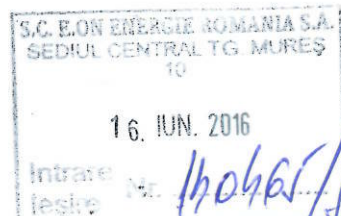 S.C. E.ON ENERGIE ROMANIA S.A.
SEDIUL CENTRAL TG. MUREȘ
10
16. IUN. 2016
Intrare
Ieșire Nr.